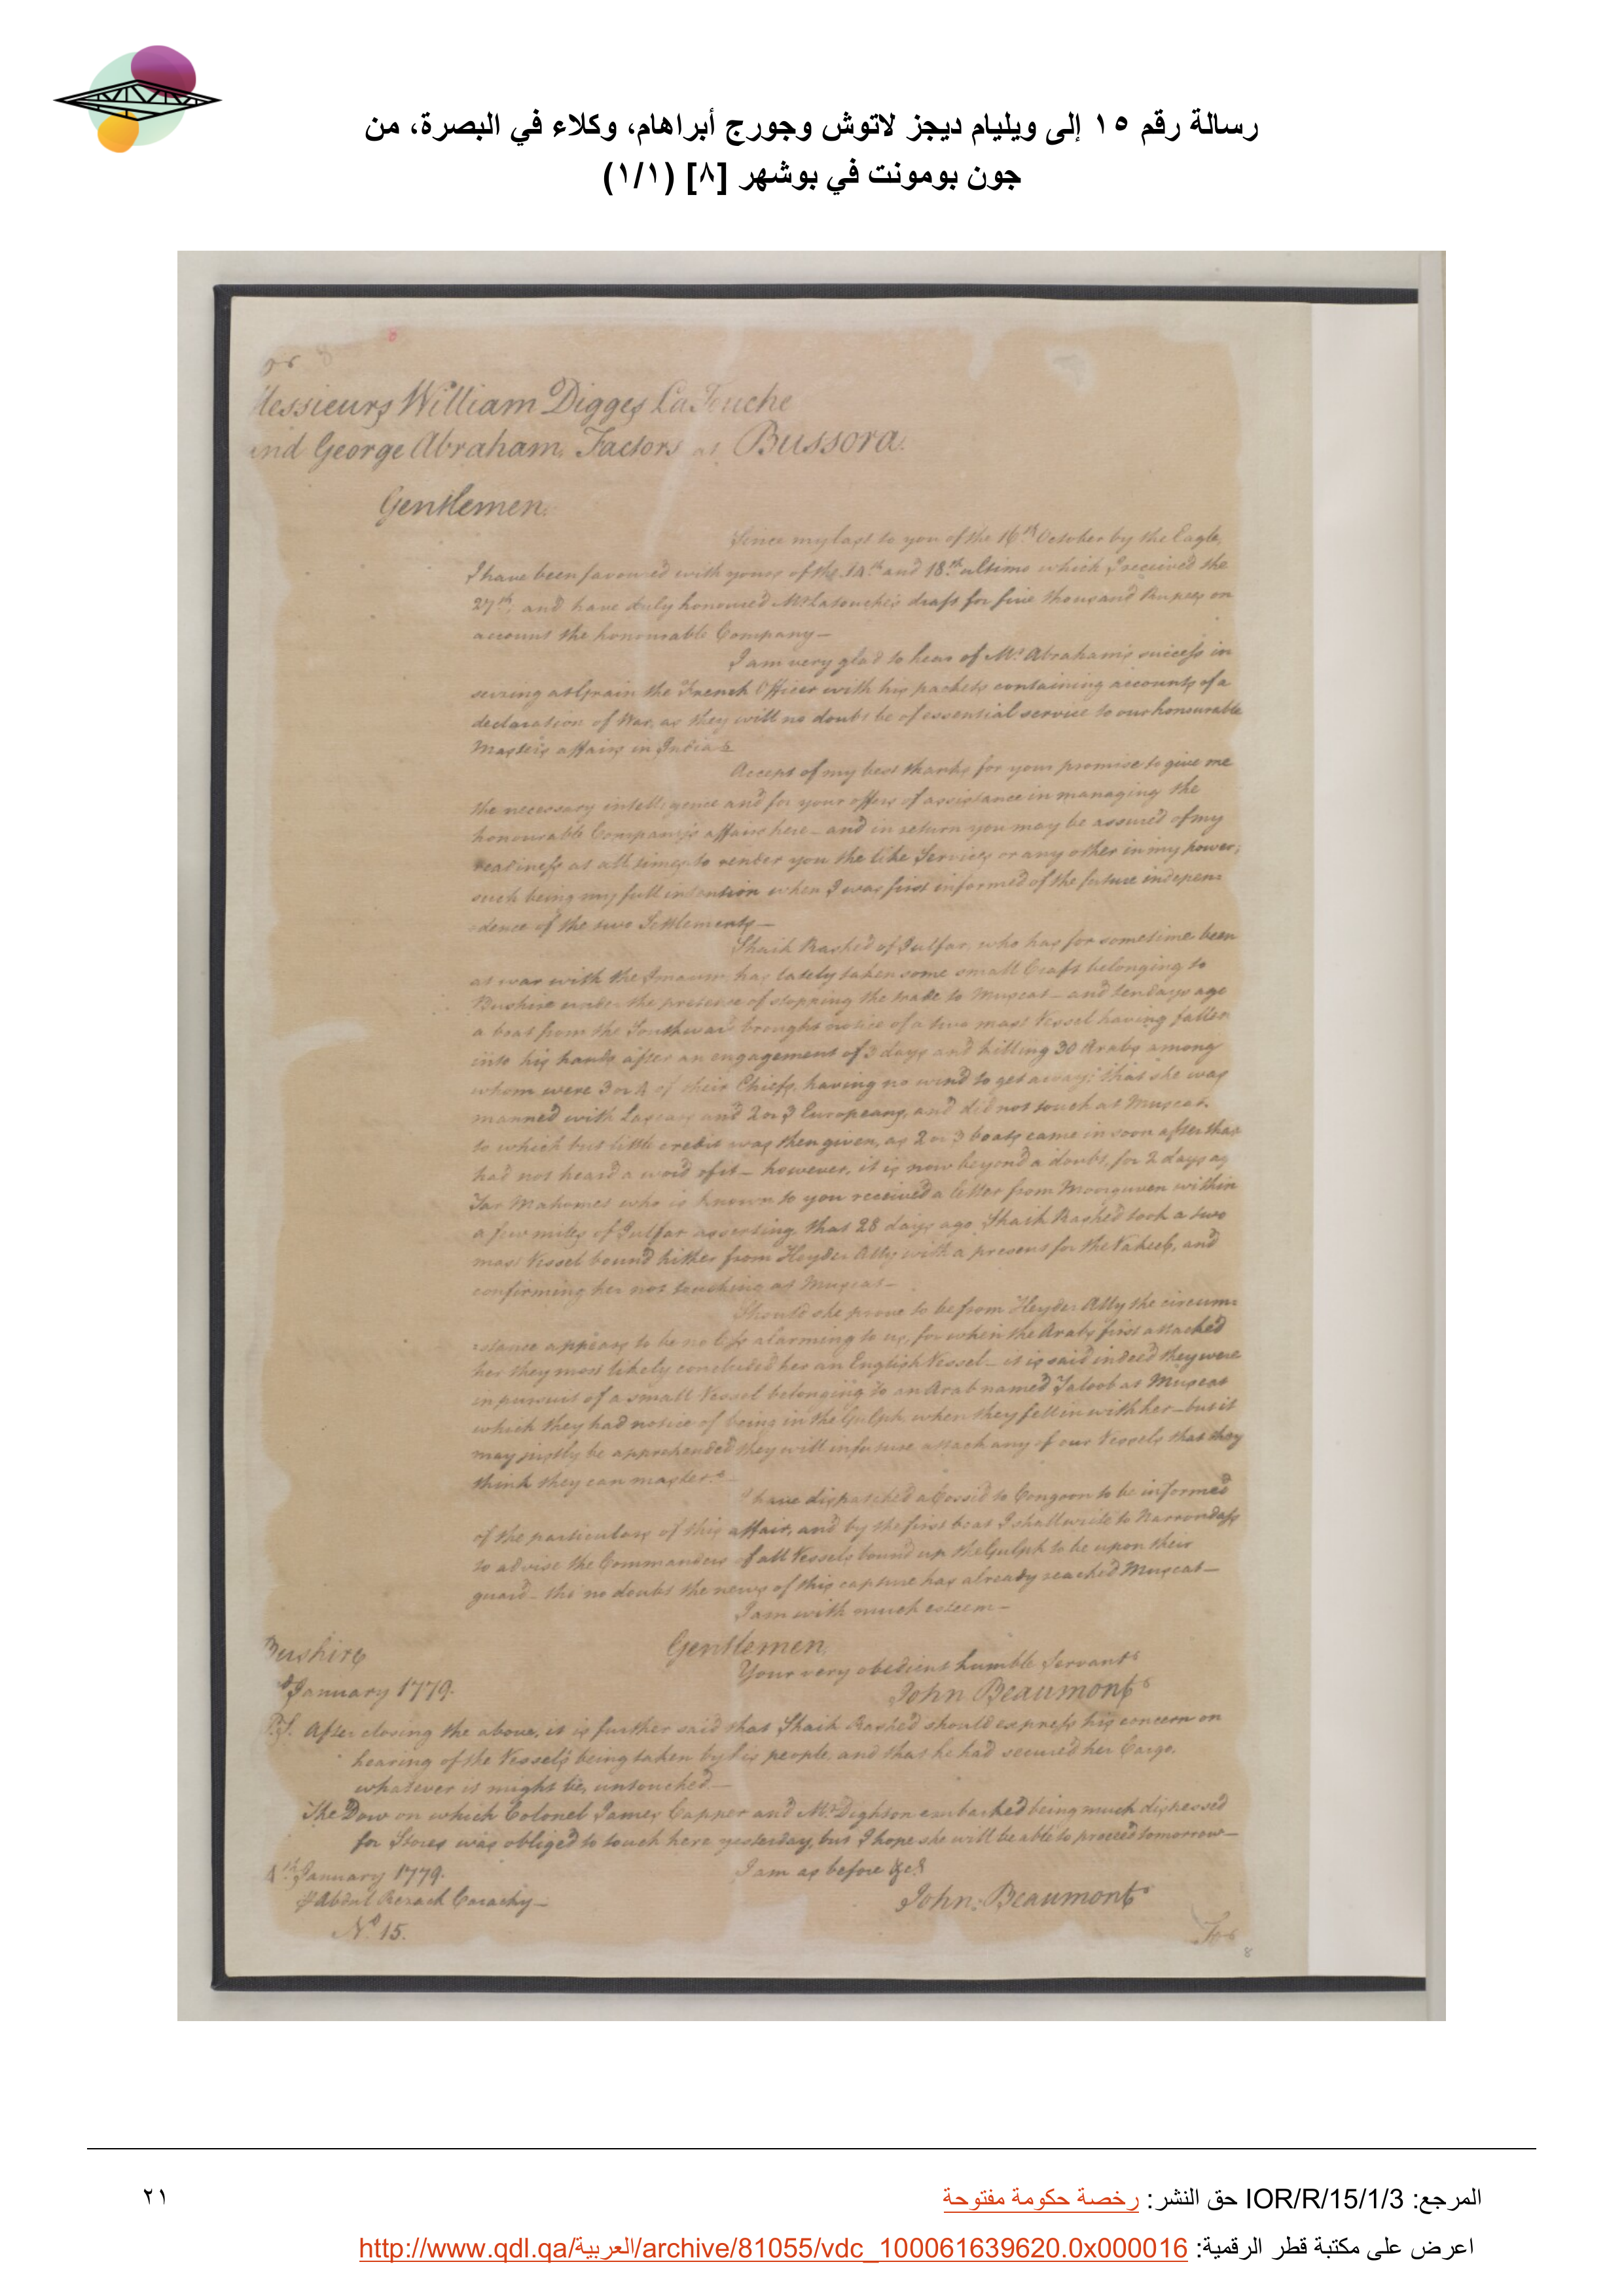 رسالة رقم ١٥ إلى ويليام ديجز لاتوش وجورج أبراهام، وكلاء في البصرة، من
جون بومونت في بوشهر [٨] (١/١)
Messieurs William Digges LaTouche
and George Abraham, Factors at Bussora.
Gentlemen.
Since my last to you of the 16th October by the Eagle,
I have been favoured with yours of the 14th and 18th ultimo which I received the
27th, and have duly honoured Mr Latouche's draft for five thousand Rupees on
account the honourable Company—
I am very glad to hear of Mr Abraham's success in
seizing at Grain the French Officer with his packets containing accounts of a
declaration of War, as they will no doubt be of essential service to our honourable
Master's affairs in India
Accept of my best thanks for your promise to give me
the necessary intelligence and for your offers of assistance in managing the
honourable Company's affairs here—and in return you may be assured of my
readiness at all times to render you the like Services or any other in my power;
such being my full intention when I was first informed of the future indepen
dence of the two Settlements—
Shaik Rashed of Julfar, who has for sometime been
at war with the Imaum, has lately taken some small Craft belonging to
Bushire under the pretence of stopping the trade to Muscat—and ten days ago
a boat from the Southward brought notice of a two mast Vessel having fallen
into his hands after an engagement of 3 days and killing 30 Arabs among
whom were 3 or 4 of their Chiefs, having no wind to get away; that she was
manned with Lascars and 2 or 3 Europeans, and did not touch at Muscat.
to which but little credit was then given, as 2 or 3 boats came in soon after that
had not heard a word of it—however, it is now beyond a doubt, for 2 days ag
Mahomet who is known to you received a letter from within
a few miles of Julfar asserting, that 28 days ago Shaik Rashed took a two
mast Vessel bound hither from Heyder Ally with a present for the Vakeel, and
confirming her not touching at Muscat—
Should she prove to be from Heyder Ally the circum
stance appears to be no less alarming to us, for when the Arabs first attacked
her they most likely concluded her an English Vessel—it is said indeed they were
in pursuit of a small Vessel belonging to an Arab named Jaloob at Muscat
which they had notice of being in the Gulph, when they fell in with her—but it
may justly be apprehended they will in future attack any of our Vessels that they
think they can master.
I have dispatched a Cossid to Congoon to be informed
of the particulars of this affair, and by the first boat I shall write to Narrondass
to advise the Commanders of all Vessels bound up the Gulph to be upon their
guard—tho' no doubt the news of this capture has already reached Muscat—
I am with much esteem—
Gentlemen,
Bushire
Your very obedient humble Servant
January 1779.
John Beaumont
P.S. After closing the above, it is further said that Shaik Rashed should express his concern on
hearing of the Vessel's being taken by his people, and that he had secured her Cargo,
whatever it might be, untouched—
The Dow on which Colonel James Capper and Mr Dighton embarked being much distressed
for Stores was obliged to touch here yesterday, but I hope she will be able to proceed tomorrow—
4th January 1779.
I am as before &ca
Abdul Rezack Carachy—
John Beaumont
No 15.
8
المرجع: IOR/R/15/1/3 حق النشر: رخصة حكومة مفتوحة
٢١
اعرض على مكتبة قطر الرقمية: http://www.qdl.qa/العربية/archive/81055/vdc_100061639620.0x000016